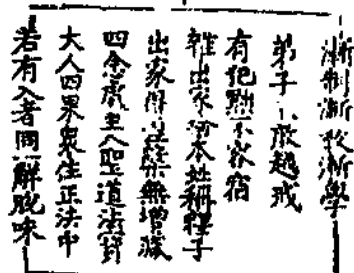 漸制漸教漸學
弟子不敢越戒
有犯黜不容宿
雜出家捨本姓稱釋子
出家得涅槃無增減
四念處至八聖道法寳
大人四果衆住正法中
若有入者同一解脫味